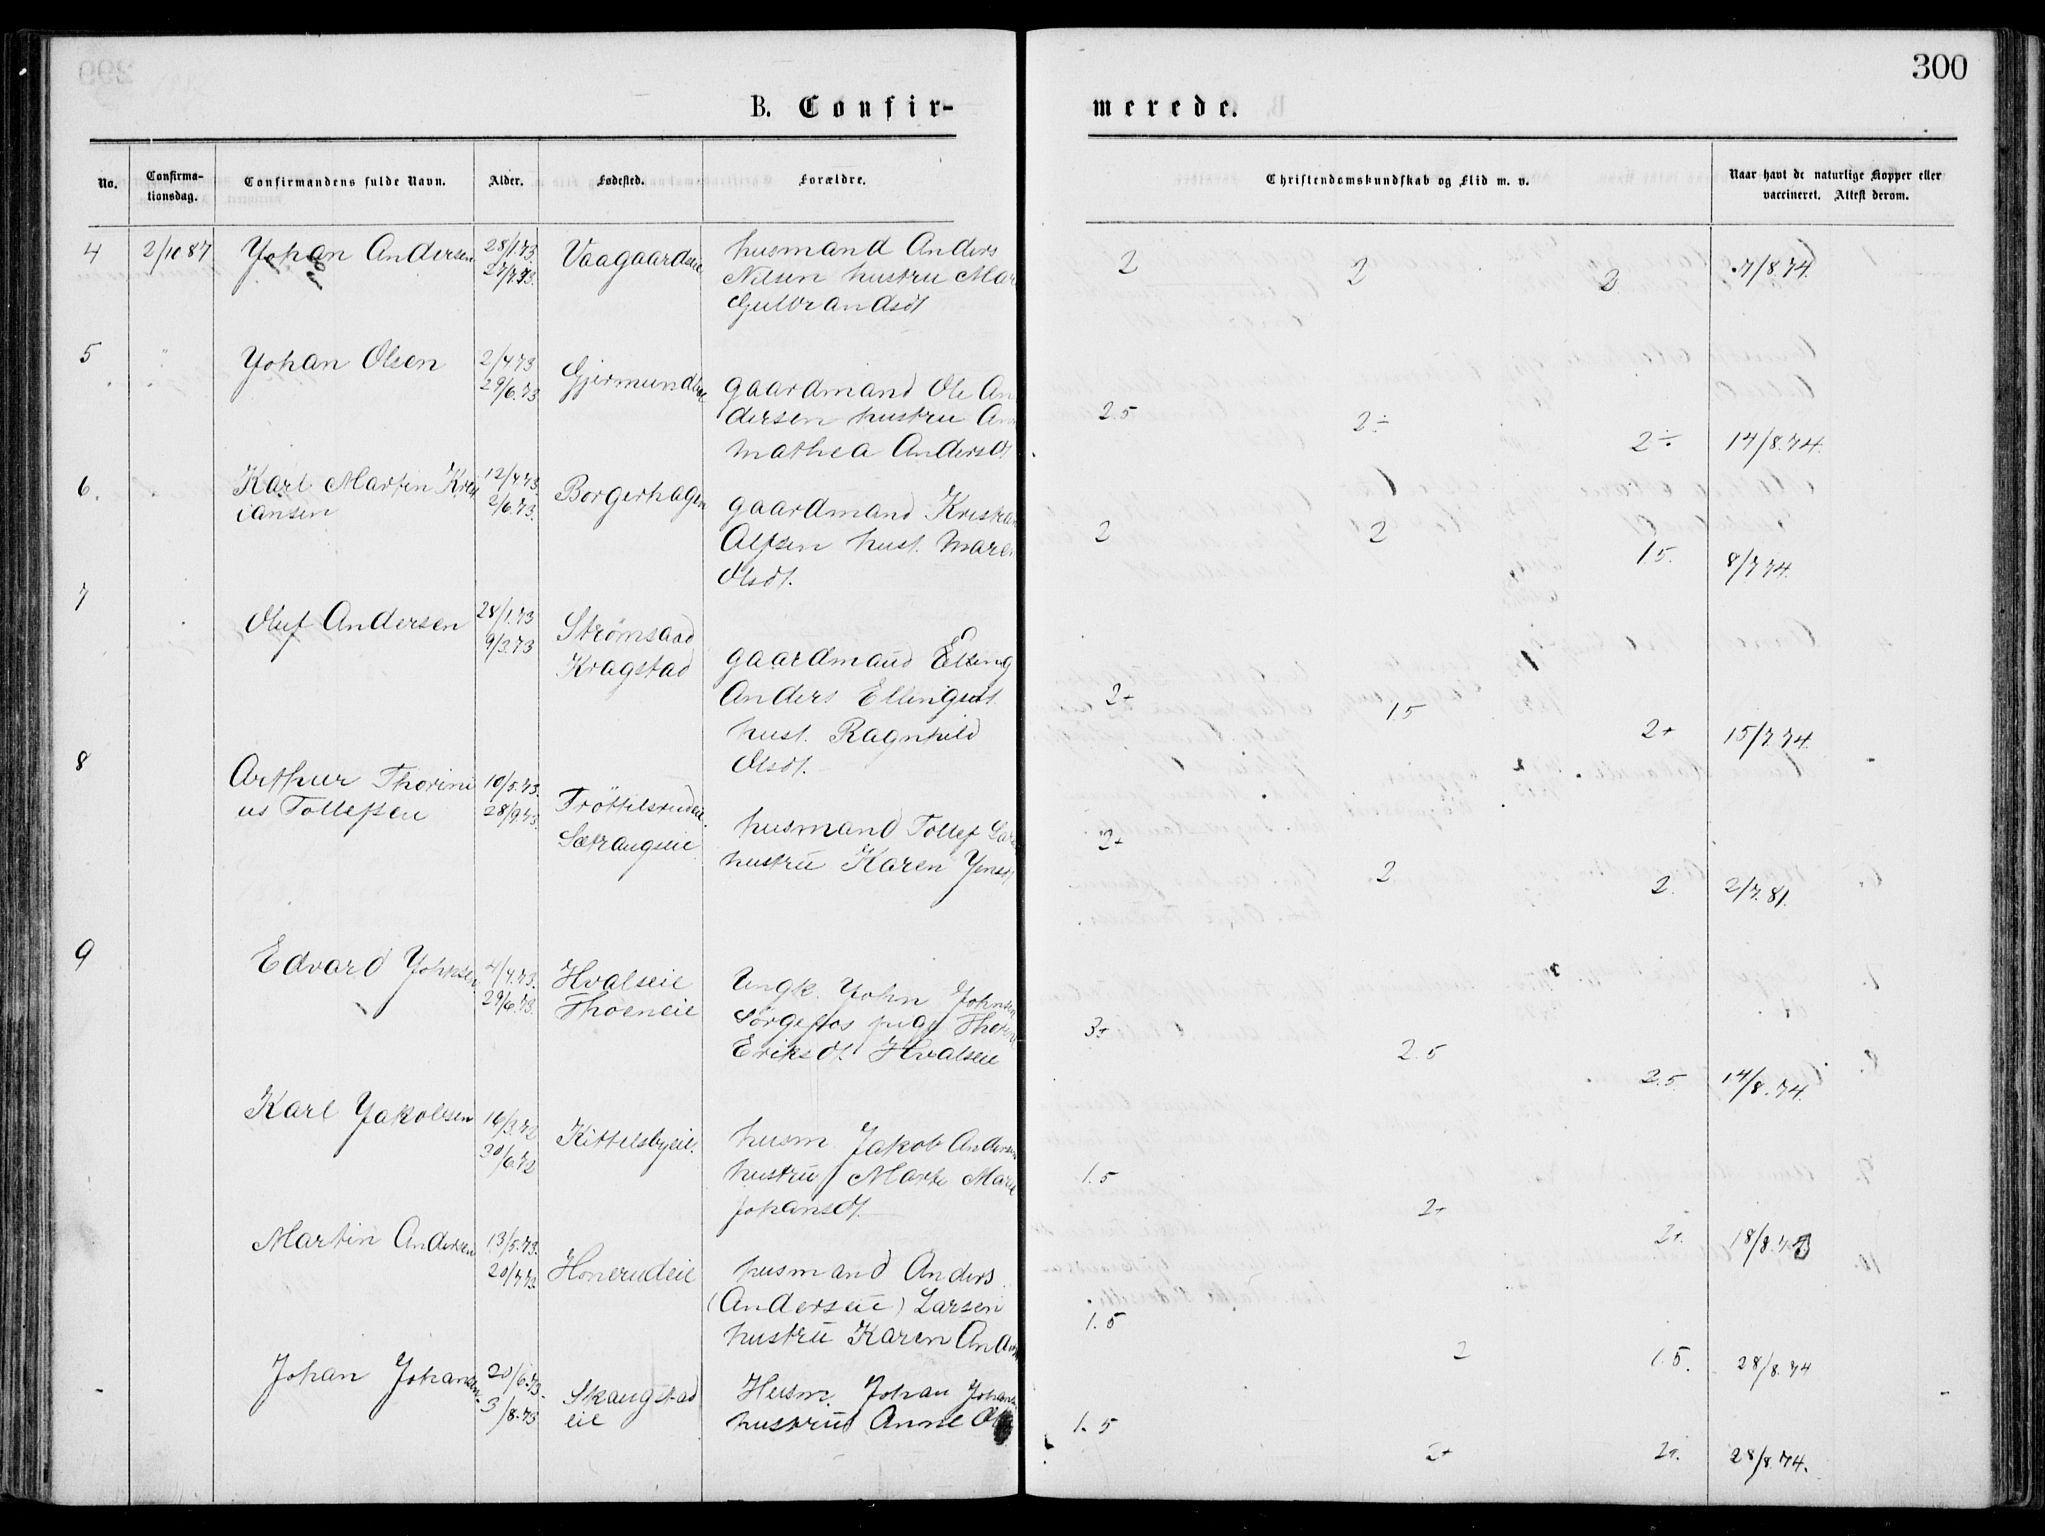 300
B. Confir-
merede.
No.
Confirma-
tionsdag.
Confirmandens fulde Navn.
Alder.
Fødested.
Forældre.
Christendomskundskab og Flid m. v.
Naar havt de naturlige Kopper eller
vaccineret. Attest derom.
4 2/10 87 Johan Andersen 28/1.73. Vaagaardseie husmand Anders
27/7.73. Nilsen hustru
Gulbrandsdt
2 2 2 7/8.74.
5 " Johan Olsen 2/4.73 Gjermundboe
29/6.73 gaardmand Ole An
dersen hustru
mathea Andersdt.
2.5 2÷ 2÷ 14/8.74.
6. Karl Martin Krist 12/4.73. Borgerhagen
iansen 2/6.73. gaardmand Kristian
Alfsen hust. Maren
Olsdt.
2 2 1.5. 8/7 74.
7 Oluf Andersen 28/1.73 Strømsaad
9/3.73 Kragstad gaardmand Elling
Anders Ellingsen
hust. Ragnhild
Olsdt.
2+ 15 2+ 15/7.74.
8 Arthur Thorini 10/5.73. Trøttelsrudeie.
us Tollefsen 28/9.73. Sætrangseie husmand Tollef
hustru Karen Jensdt
2+ 2 2. 2/7.81.
9 Edvard Johnsen 4/4.73. Hvalseie Ungk. John Johnsen
29/6.73. Thoeneie Sørgefos pige
Eriksdt. Hvalseie
3+ 2.5 2.5 14/8.74.
Karl Jakobsen 16/3.72 Kittelsbyeie. husm Jakob Andersen
30/6.72 hustru Marte Marie
Johansdt.
1.5 2+ 2+. 18/8.73
Martin Andersen 13/5.73. Honerudeie husmand Anders
20/7.73 (Andersen) Larsen
hustru Karen
1.5 2 1.5. 28/8.74
Johan Johansen. 20/6.73. Skaugstad Husm. Johan Johans
3/8.73 eie hustru Anne
1.5 2+ 2+. 28/8.74.